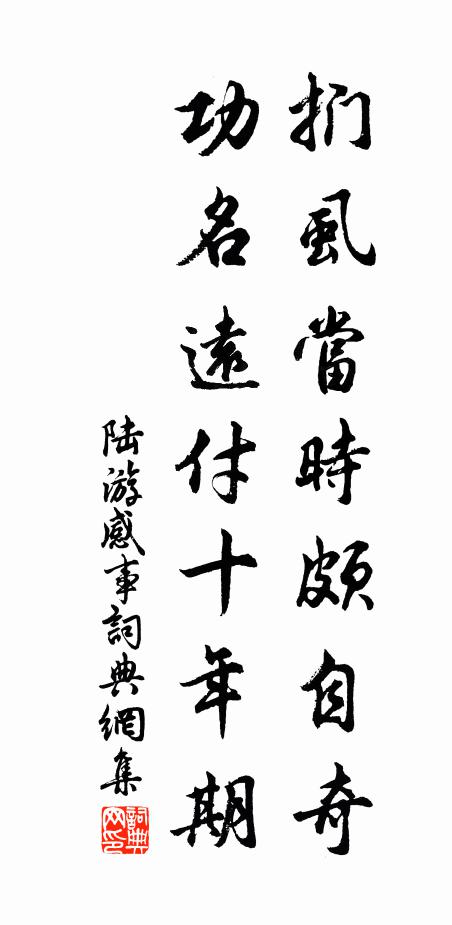 捫虱當時頗自奇
功名遠付十年期
陆游感事詞典網集
詞典
网印